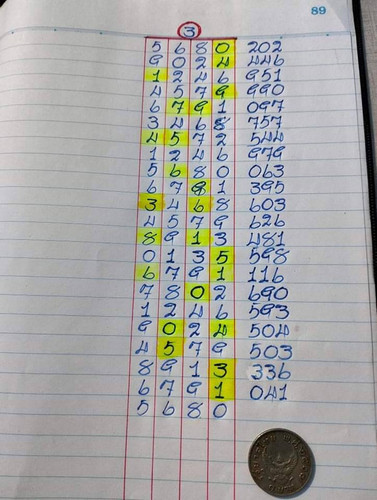 89
3
5 6 8 0 202
9 0 2 4 446
1 2 4 6 951
4 5 7 9 990
6 7 9 1 097
3 4 6 8 757
4 5 7 2 544
1 2 4 6 979
5 6 8 0 063
6 7 9 1 395
3 4 6 8 603
4 5 7 9 626
8 9 1 3 481
0 1 3 5 598
6 7 9 1 116
7 8 0 2 690
1 2 4 6 593
9 0 2 4 504
4 5 7 9 503
8 9 1 3 336
6 7 9 1 041
5 6 8 0